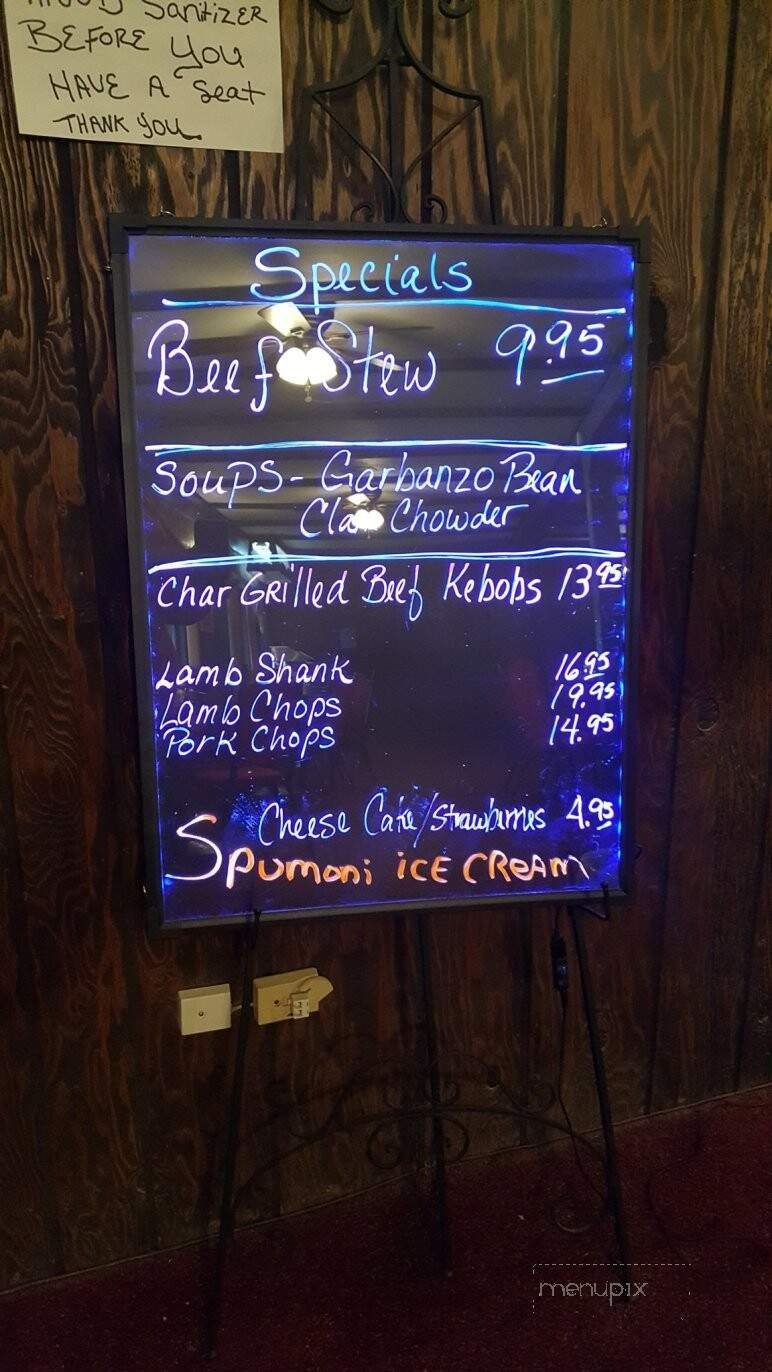 Sanitizer
BEFORE you
HAVE A Seat
THANK you
Specials
Beef Stew 9.95
Soups - Garbanzo Bean
Clam Chowder
Char Grilled Beef Kebobs 13 95
Lamb Shank 16.95
Lamb Chops 19.95
Pork Chops 14.95
Cheese Cake/Strawberries 4.95
Spumoni ICE CREAM
menupix